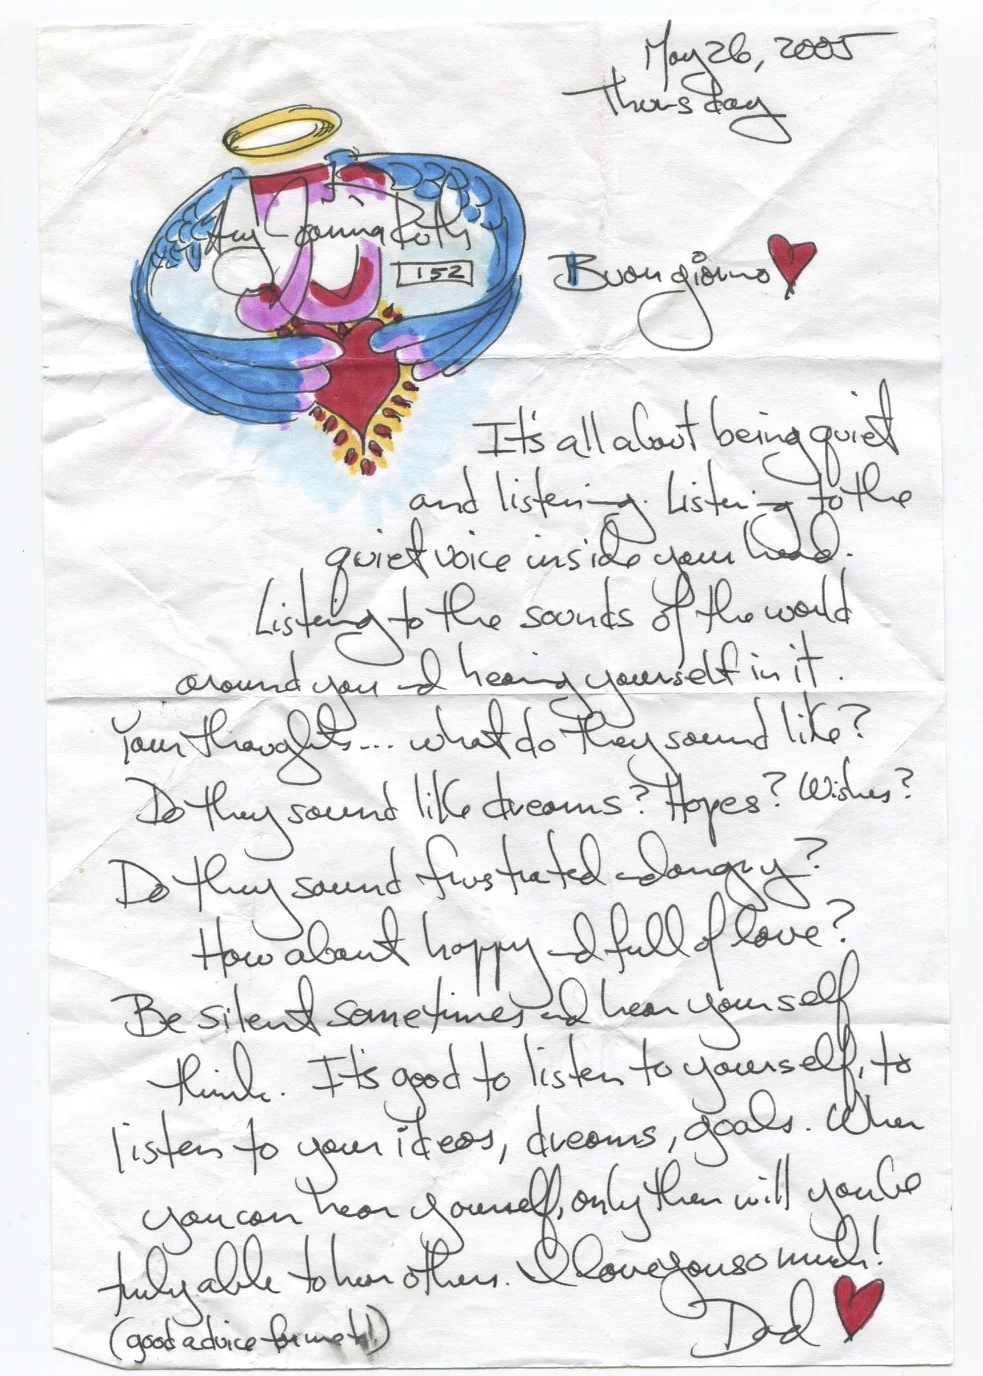 May 26, 2005
Thursday
Joanna Ruth
152
Buon giorno
It's all about being quiet
and listening. Listening to the
quiet voice inside your head.
Listening to the sounds of the world
around you and hearing yourself in it.
Your thoughts... what do they sound like?
Do they sound like dreams? Hopes? Wishes?
Do they sound frustrated and angry?
How about happy and full of love?
Be silent sometimes and hear yourself
think. It's good to listen to yourself, to
listen to your ideas, dreams, goals. When
you can hear yourself, only then will you be
truly able to hear others. I love you so much!
Dad
(good advice for me too!)